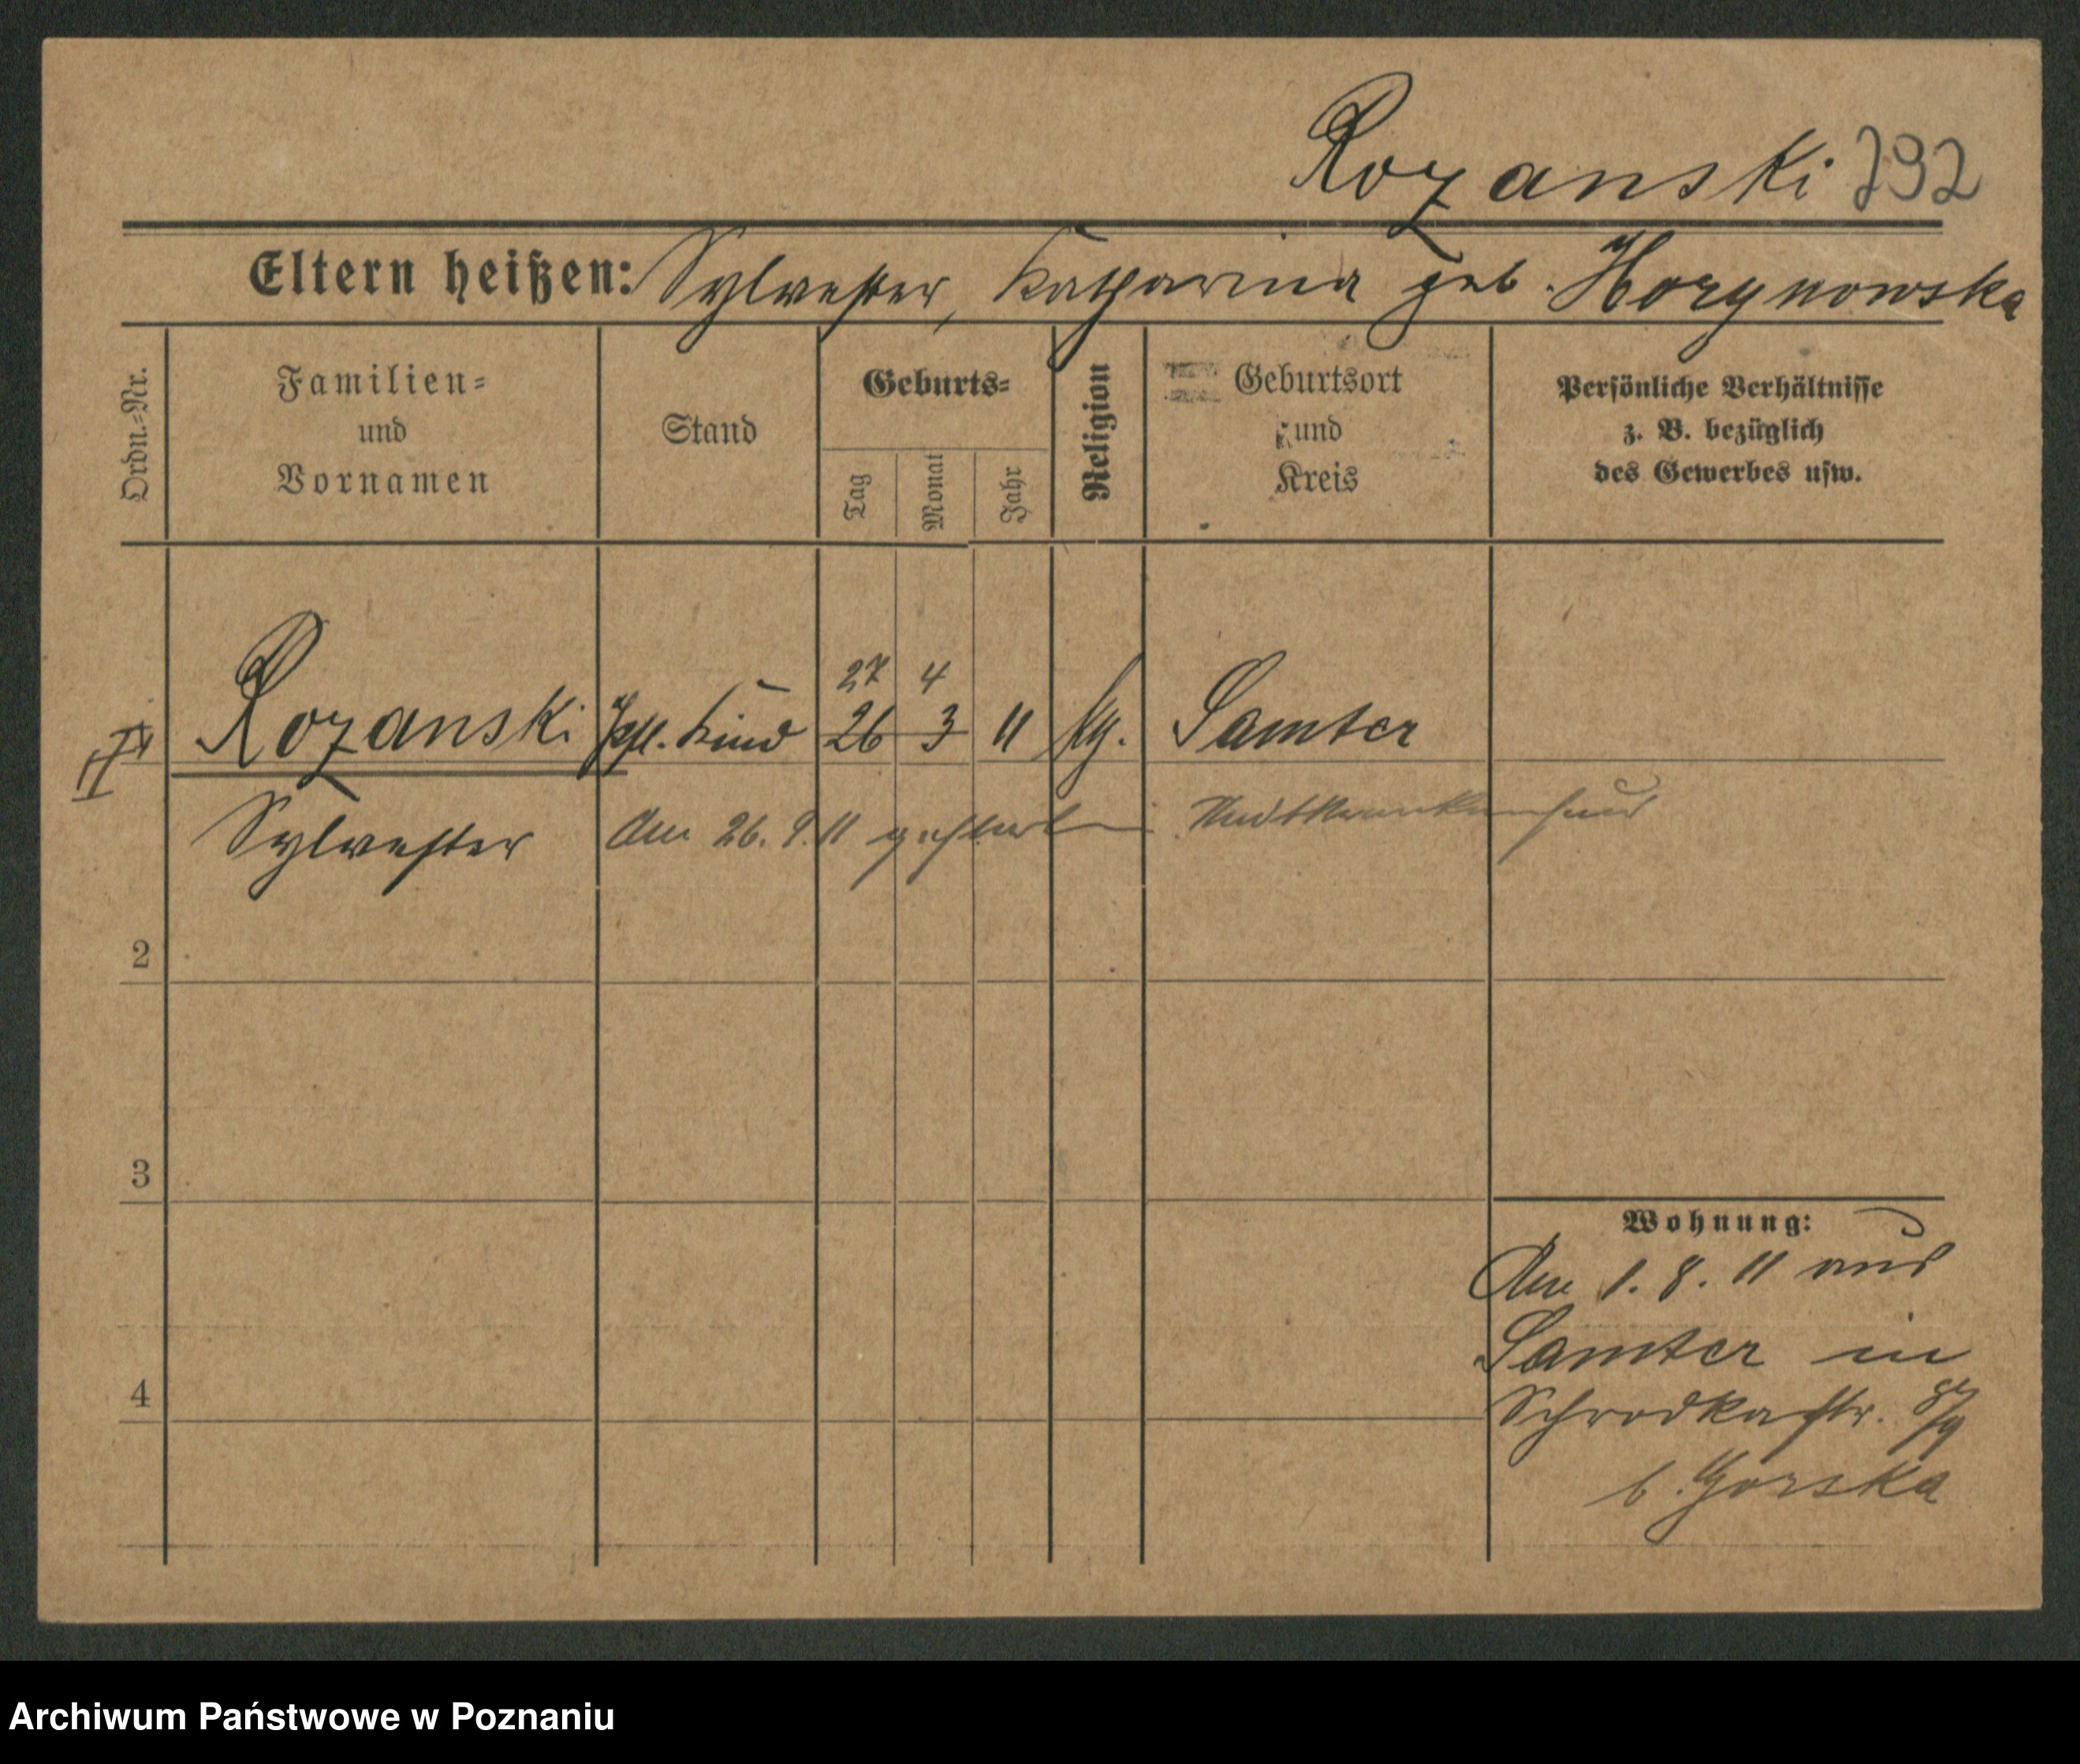 Rozanski 792
Eltern heißen: Sylvester, Katharina geb. Horynowska
Ordn.-Nr.
Familien-
und
Vornamen
Stand
Geburts-
Tag
Monat
Jahr
Religion
Geburtsort
und
Kreis
Persönliche Verhältnisse
z. B. bezüglich
des Gewerbes usw.
27 4
Rozanski Pfl. Kind 26 3 11 kg. Samter
Sylvester Am 26. 9. 11 gestorben Stadtkrankenhaus
2
3
4
Wohnung:
Am 1. 8. 11 aus
Samter in
Schrodkastr. 8/9
b. Gorska
Archiwum Państwowe w Poznaniu